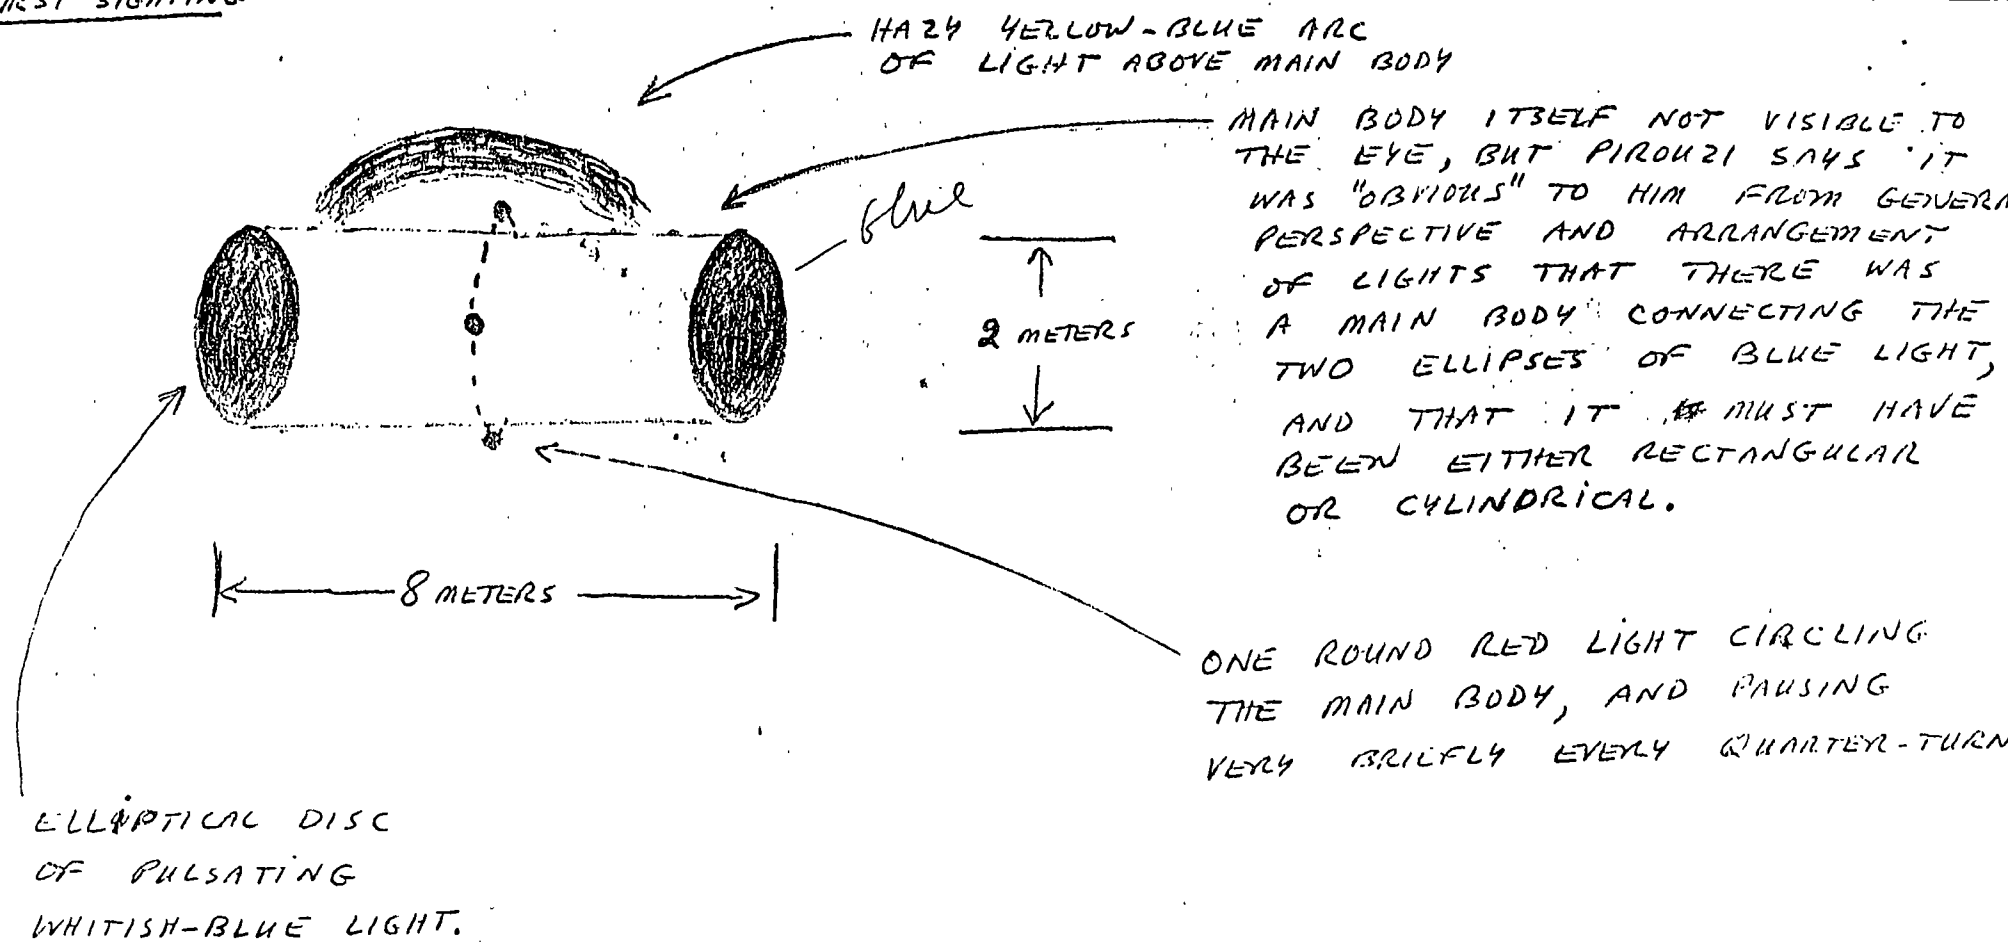 SIGHTING
HAZY YELLOW-BLUE ARC
OF LIGHT ABOVE MAIN BODY
MAIN BODY ITSELF NOT VISIBLE TO
THE EYE, BUT PIROUZI SAYS IT
WAS "OBVIOUS" TO HIM FROM GENERA
PERSPECTIVE AND ARRANGEMENT
OF LIGHTS THAT THERE WAS
A MAIN BODY CONNECTING THE
TWO ELLIPSES OF BLUE LIGHT,
AND THAT IT MUST HAVE
BEEN EITHER RECTANGULAR
OR CYLINDRICAL.
blue
2 METERS
8 METERS
ONE ROUND RED LIGHT CIRCLING
THE MAIN BODY, AND PAUSING
VERY BRIEFLY EVERY QUARTER-TURN
ELLIPTICAL DISC
OF PULSATING
WHITISH-BLUE LIGHT.